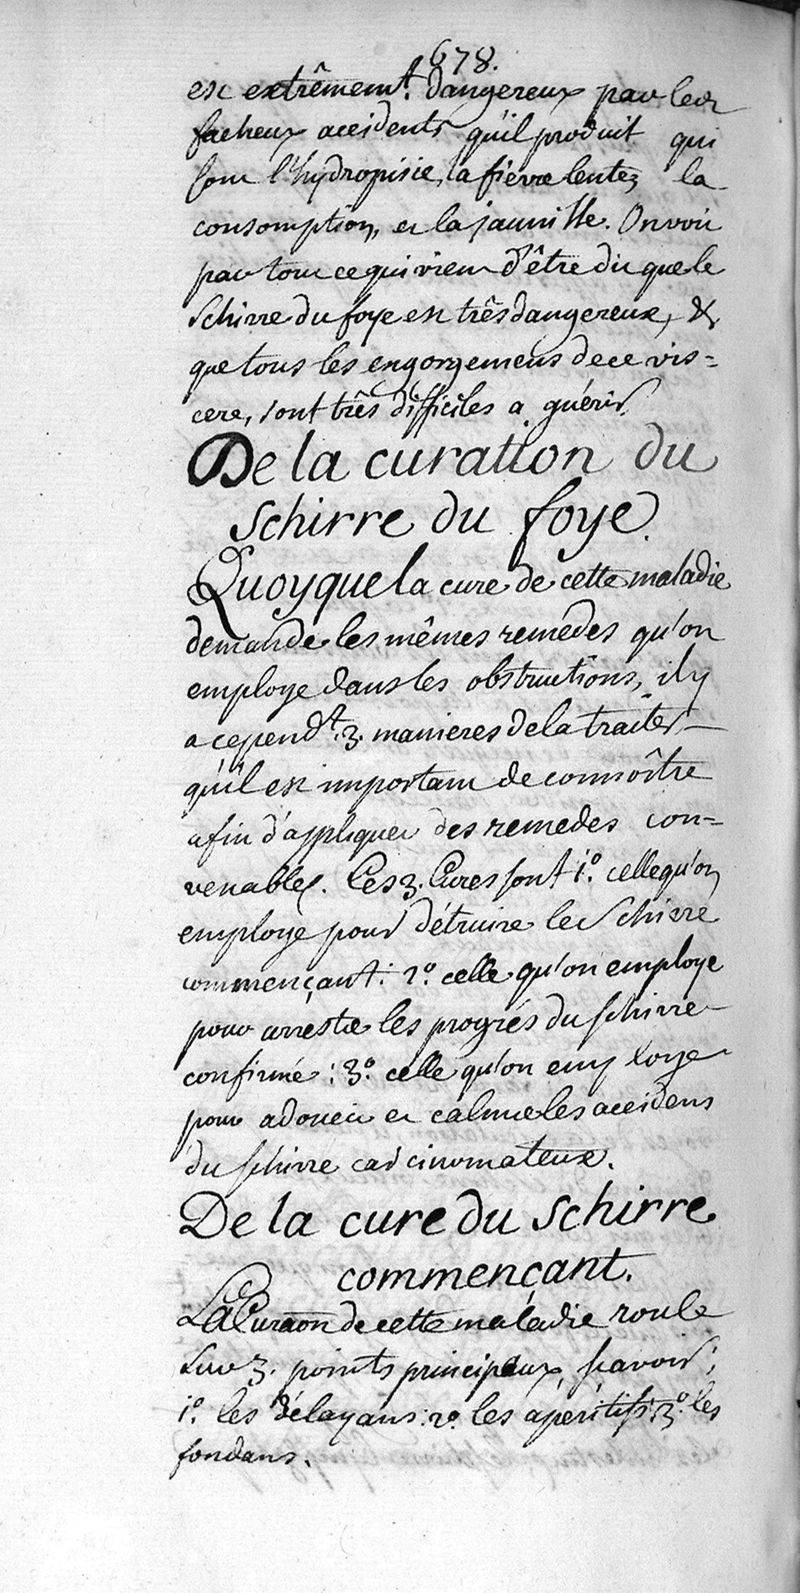 678.
est extrêmemt. dangereux par les
facheux accidents qu'il produit qui
sont l'hydropisie, la fievre lente, la
consomption, et la jaunisse. On voit
par tout ce qui vient d'être dit que le
Schirre du foye est três dangereux, &
que tous les engorgemens de ce vis=
cere, sont três difficiles a guérir.
De la curation du
Schirre du foye.
Quoyque la cure de cette maladie
demande les mêmes remedes qu'on
employe dans les obstructions, il y
a cependt. 3. manieres de la traiter
qu'il est important de connoître
afin d'appliquer des remedes con=
venables. Ces 3. Cures sont 1º. celle qu'on
employe pour détruire le Schirre
commençant: 2º. celle qu'on employe
pour arrester les progrés du schirre
confirmé: 3º. celle qu'on employe
pour adoucir et calmer les accidens
du schirre carcinomateux.
De la cure du Schirre
commençant.
La Curaon de cette maladie roule
sur 3. points principaux, sçavoir;
1º. les délayans: 2º. les apéritifs: 3º. les
fondans.